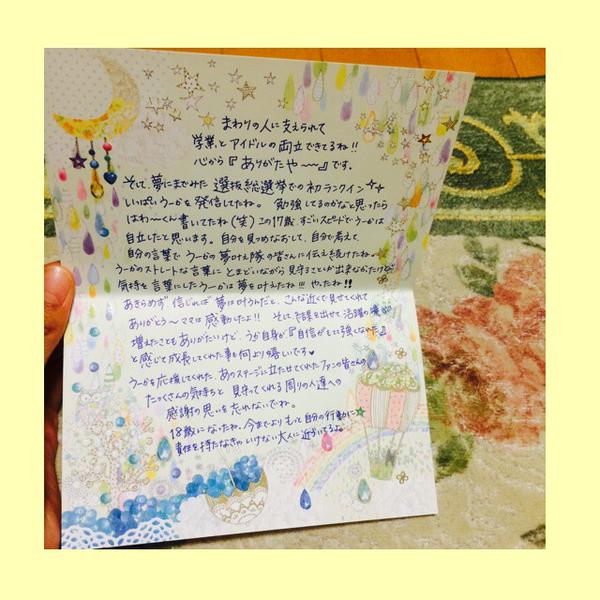 まわりの人に支えられて
学業とアイドルの両立できてるね!!
心から『ありがたや〜〜』です。
そして、夢にまでみた 選抜総選挙での初ランクイン
いっぱいうーかを発信してたね。 勉強してるのかなと思ったら
はわ〜くん書いてたね(笑)この17歳、すごいスピードでうーかは
自立したと思います。自分を見つめなおして、自分で考えて、
自分の言葉で うーかの夢叶え隊の皆さんに伝え続けたね。
うーかのストレートな言葉に とまどいながら 見守ることしか出来なかったけど
気持を言葉にしたうーかは夢を叶えたね!!! やったね!!
あきらめず 信じれば 夢は叶うんだと、こんな近くで見せてくれて
ありがとう〜ママは感動したよ!! そして、結果を出せて活躍の機会が
増えたこともありがたいけど、うーか自身が『自信がもてて強くなれた』
と感じて成長してくれた事も何より嬉しいです♥
うーかを応援してくれた、あのステージに立たせてくれたファンの皆さんの
たっくさんの気持ちと 見守ってくれる 周りの人達への
感謝の思いを忘れないでね。
18歳になったね。今までよりもっと自分の行動に
責任を持たなきゃいけない大人に近づいてるよ。